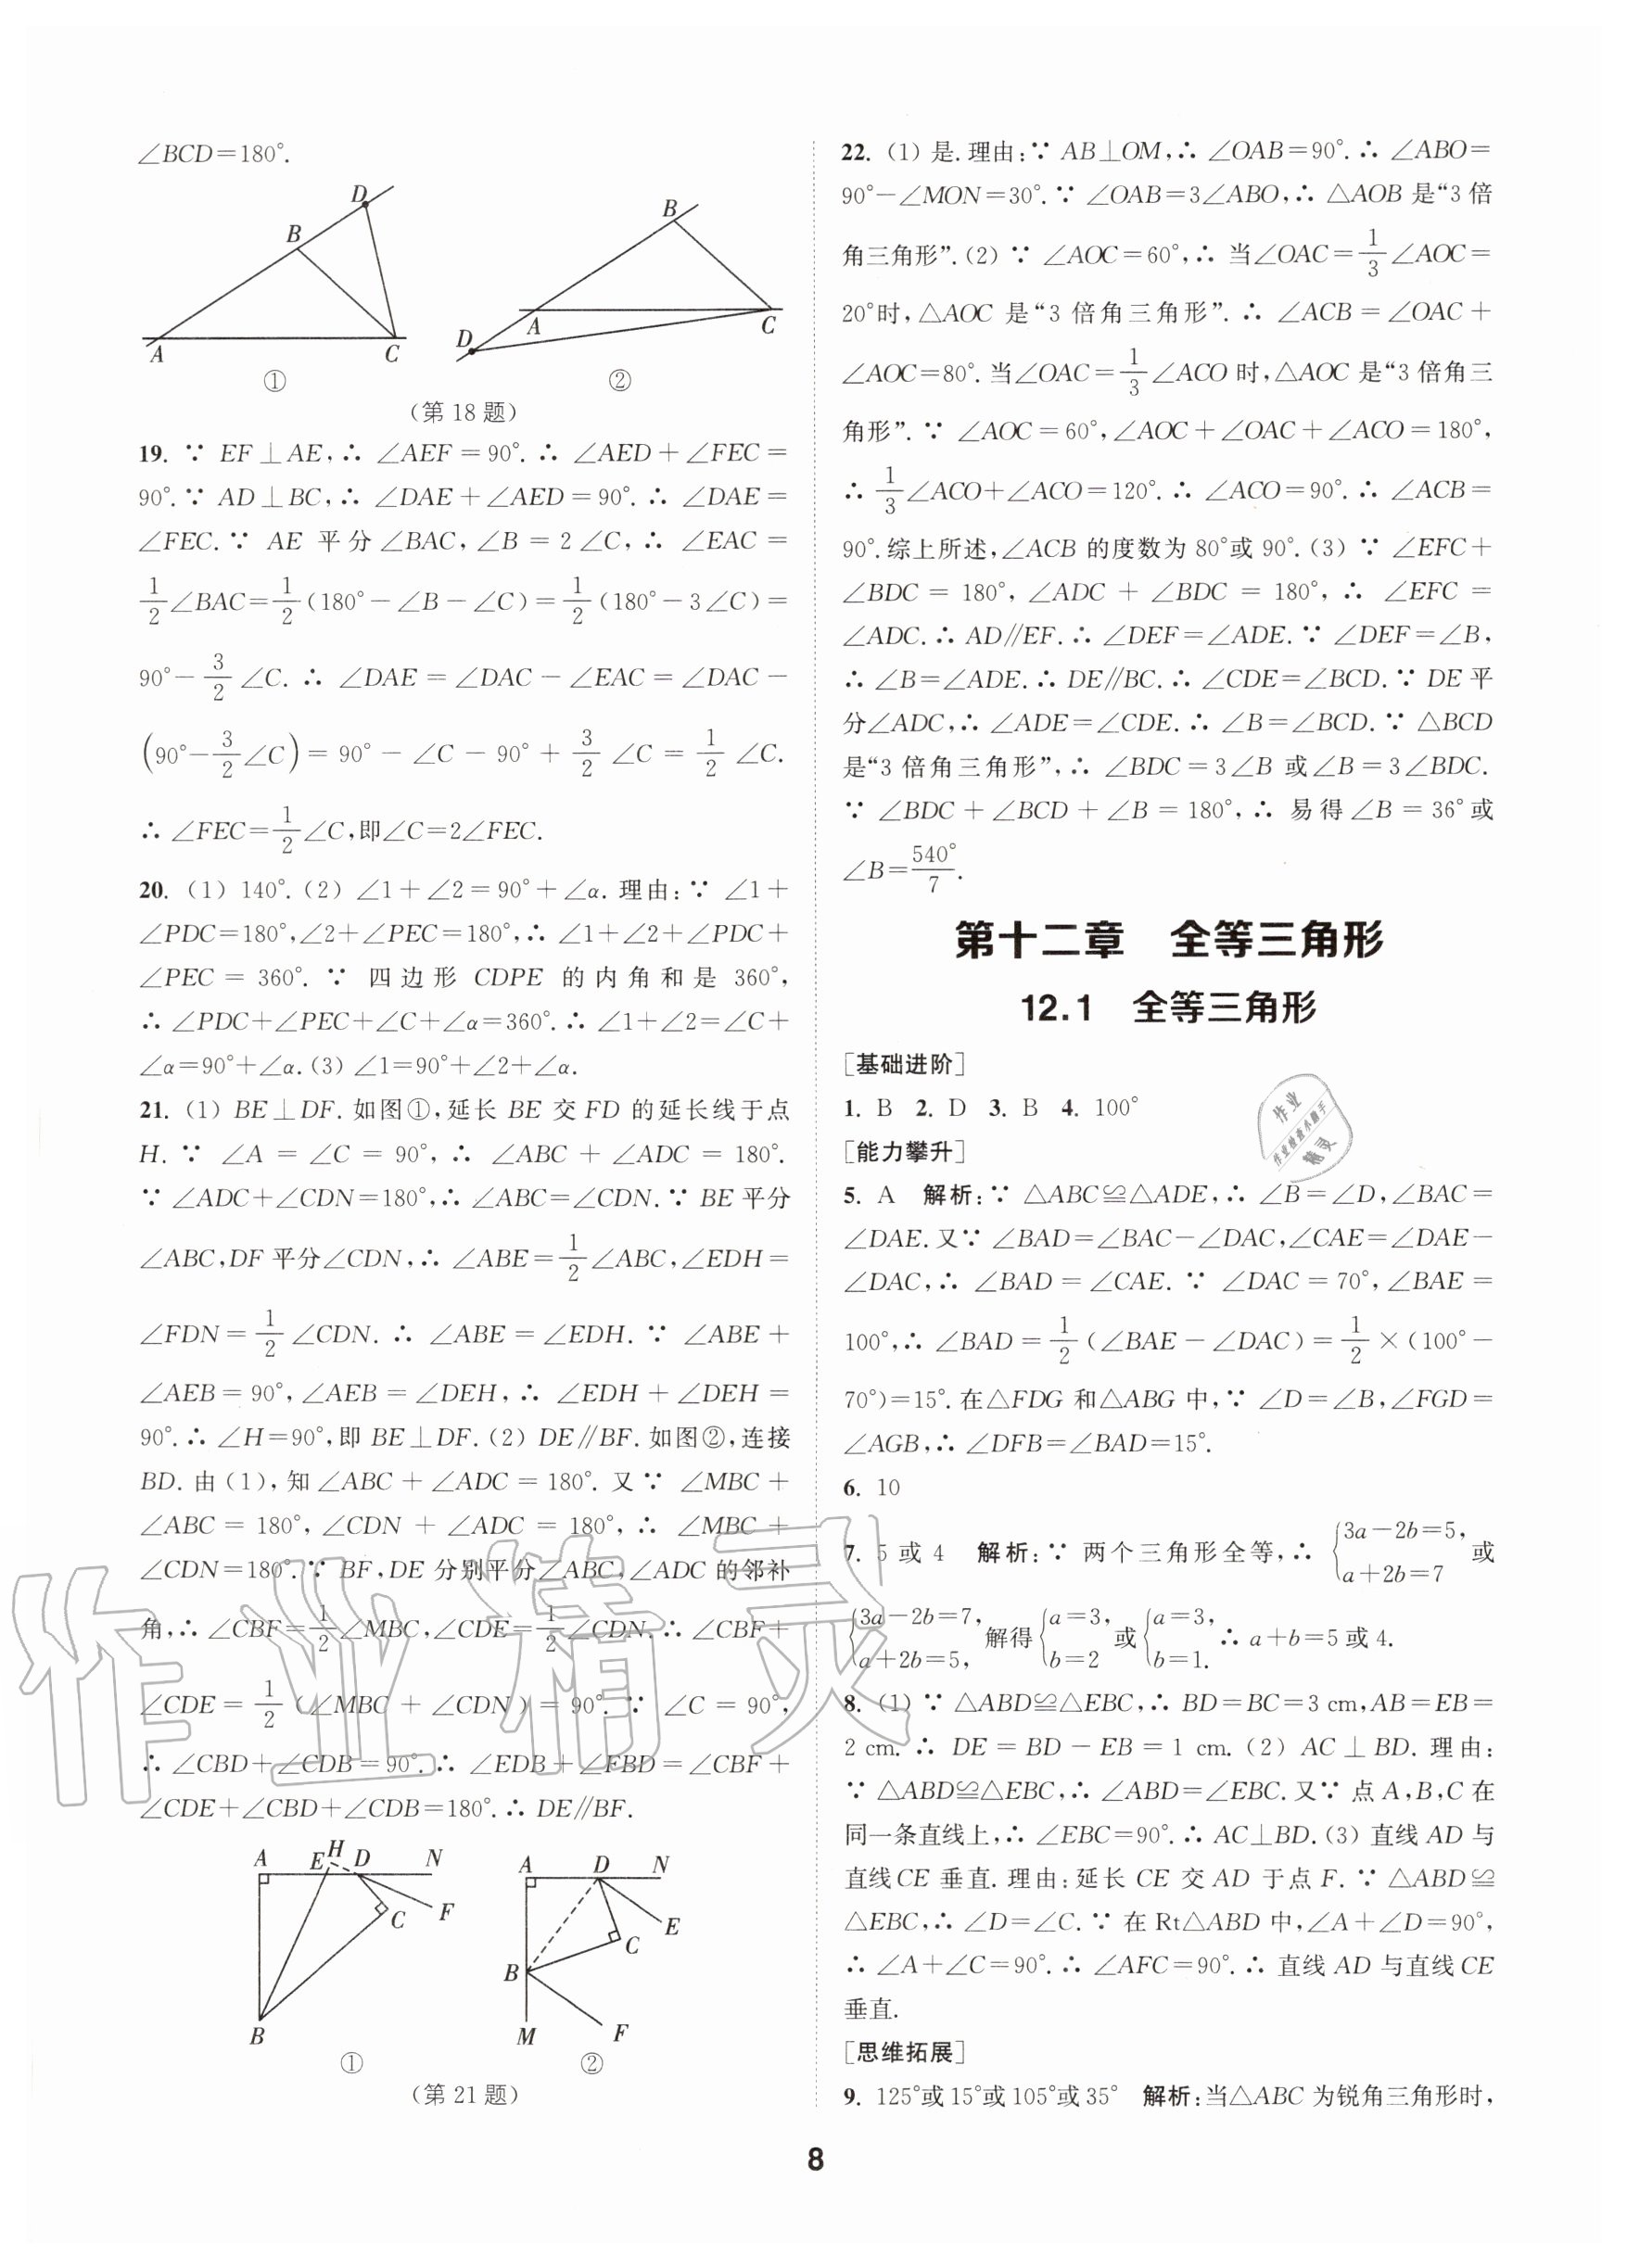 ∠BCD=180°.
D
B
A
C
①
B
A
C
D
②
(第18题)
19. ∵ EF⊥AE,∴ ∠AEF=90°.∴ ∠AED+∠FEC=
90°.∵ AD⊥BC,∴ ∠DAE+∠AED=90°.∴ ∠DAE=
∠FEC.∵ AE 平分∠BAC,∠B=2∠C,∴ ∠EAC=
1/2∠BAC=1/2(180°-∠B-∠C)=1/2(180°-3∠C)=
90°-3/2∠C.∴ ∠DAE=∠DAC-∠EAC=∠DAC-
(90°-3/2∠C)=90°-∠C-90°+3/2∠C=1/2∠C.
∴ ∠FEC=1/2∠C,即∠C=2∠FEC.
20. (1) 140°.(2) ∠1+∠2=90°+∠α.理由:∵ ∠1+
∠PDC=180°,∠2+∠PEC=180°,∴ ∠1+∠2+∠PDC+
∠PEC=360°.∵ 四边形 CDPE 的内角和是 360°,
∴ ∠PDC+∠PEC+∠C+∠α=360°.∴ ∠1+∠2=∠C+
∠α=90°+∠α.(3) ∠1=90°+∠2+∠α.
21. (1) BE⊥DF.如图①,延长 BE 交 FD 的延长线于点
H.∵ ∠A=∠C=90°,∴ ∠ABC+∠ADC=180°.
∵ ∠ADC+∠CDN=180°,∴ ∠ABC=∠CDN.∵ BE 平分
∠ABC,DF 平分∠CDN,∴ ∠ABE=1/2∠ABC,∠EDH=
∠FDN=1/2∠CDN.∴ ∠ABE=∠EDH.∵ ∠ABE+
∠AEB=90°,∠AEB=∠DEH,∴ ∠EDH+∠DEH=
90°.∴ ∠H=90°,即 BE⊥DF.(2) DE∥BF.如图②,连接
BD.由(1),知∠ABC+∠ADC=180°.又∵ ∠MBC+
∠ABC=180°,∠CDN+∠ADC=180°,∴ ∠MBC+
∠CDN=180°.∵ BF,DE 分别平分∠ABC,∠ADC 的邻补
角,∴ ∠CBF=1/2∠MBC,∠CDE=1/2∠CDN.∴ ∠CBF+
∠CDE=1/2(∠MBC+∠CDN)=90°.∵ ∠C=90°,
∴ ∠CBD+∠CDB=90°.∴ ∠EDB+∠FBD=∠CBF+
∠CDE+∠CBD+∠CDB=180°.∴ DE∥BF.
A
E
H
D
N
C
F
B
①
A
D
N
E
C
B
M
F
②
(第21题)
22. (1) 是.理由:∵ AB⊥OM,∴ ∠OAB=90°.∴ ∠ABO=
90°-∠MON=30°.∵ ∠OAB=3∠ABO,∴ △AOB 是“3 倍
角三角形”.(2) ∵ ∠AOC=60°,∴ 当∠OAC=1/3∠AOC=
20°时,△AOC 是“3 倍角三角形”.∴ ∠ACB=∠OAC+
∠AOC=80°.当∠OAC=1/3∠ACO 时,△AOC 是“3 倍角三
角形”.∵ ∠AOC=60°,∠AOC+∠OAC+∠ACO=180°,
∴ 1/3∠ACO+∠ACO=120°.∴ ∠ACO=90°.∴ ∠ACB=
90°.综上所述,∠ACB 的度数为 80°或 90°.(3) ∵ ∠EFC+
∠BDC=180°,∠ADC+∠BDC=180°,∴ ∠EFC=
∠ADC.∴ AD∥EF.∴ ∠DEF=∠ADE.∵ ∠DEF=∠B,
∴ ∠B=∠ADE.∴ DE∥BC.∴ ∠CDE=∠BCD.∵ DE 平
分∠ADC,∴ ∠ADE=∠CDE.∴ ∠B=∠BCD.∵ △BCD
是“3 倍角三角形”,∴ ∠BDC=3∠B 或∠B=3∠BDC.
∵ ∠BDC+∠BCD+∠B=180°,∴ 易得∠B=36°或
∠B=540°/7.
第十二章 全等三角形
12.1 全等三角形
[基础进阶]
1. B 2. D 3. B 4. 100°
[能力攀升]
5. A 解析:∵ △ABC≌△ADE,∴ ∠B=∠D,∠BAC=
∠DAE.又∵ ∠BAD=∠BAC-∠DAC,∠CAE=∠DAE-
∠DAC,∴ ∠BAD=∠CAE.∵ ∠DAC=70°,∠BAE=
100°,∴ ∠BAD=1/2(∠BAE-∠DAC)=1/2×(100°-
70°)=15°.在△FDG 和△ABG 中,∵ ∠D=∠B,∠FGD=
∠AGB,∴ ∠DFB=∠BAD=15°.
6. 10
7. 5 或 4 解析:∵ 两个三角形全等,∴ {3a-2b=5, a+2b=7 或
{3a-2b=7, a+2b=5, 解得{a=3, b=2 或{a=3, b=1. ∴ a+b=5 或 4.
8. (1) ∵ △ABD≌△EBC,∴ BD=BC=3 cm,AB=EB=
2 cm.∴ DE=BD-EB=1 cm.(2) AC⊥BD.理由:
∵ △ABD≌△EBC,∴ ∠ABD=∠EBC.又∵ 点 A,B,C 在
同一条直线上,∴ ∠EBC=90°.∴ AC⊥BD.(3) 直线 AD 与
直线 CE 垂直.理由:延长 CE 交 AD 于点 F.∵ △ABD≌
△EBC,∴ ∠D=∠C.∵ 在 Rt△ABD 中,∠A+∠D=90°,
∴ ∠A+∠C=90°.∴ ∠AFC=90°.∴ 直线 AD 与直线 CE
垂直.
[思维拓展]
9. 125°或 15°或 105°或 35° 解析:当△ABC 为锐角三角形时,
8
作业精灵
作业
作业检查小助手
精灵